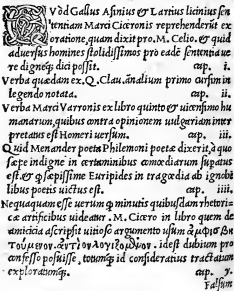 QVod Gallus Asinius & Larius licinius sen
tentiam Marci Ciceronis reprehenderũt ex
oratione, quam dixit pro. M. Celio. & quid
aduersus homines stolidissimos pro eadẽ sententia ue
re digneq; dici possit. cap. i.
Verba quædam ex. Q. Clau. ãnalium primo cursim in
legendo notata. cap. ii.
Verba Marci Varronis ex libro quinto & uicensimo hu
manarum, quibus contra opinionem uulgariam inter
pretatus est Homeri uersum. cap. iii.
Quid Menander poeta Philemoni poetæ dixerit, à quo
sæpe indigne in certaminibus comœdiarum supatus
est. & q̃ sæpissime Euripides in tragœdia ab ignobi
libus poetis uictus est. cap. iiii.
Nequaquam esse uerum q̃ minutis quibusdam rhetori-
cæ artificibus uideatur. M. Cicero in libro quem de
amicicia ascripsit uitioso argumento usum
idest dubium pro
confesso posuisse, totumq; id consideratius tractatum
exploratumq;. cap. v.
Falsum